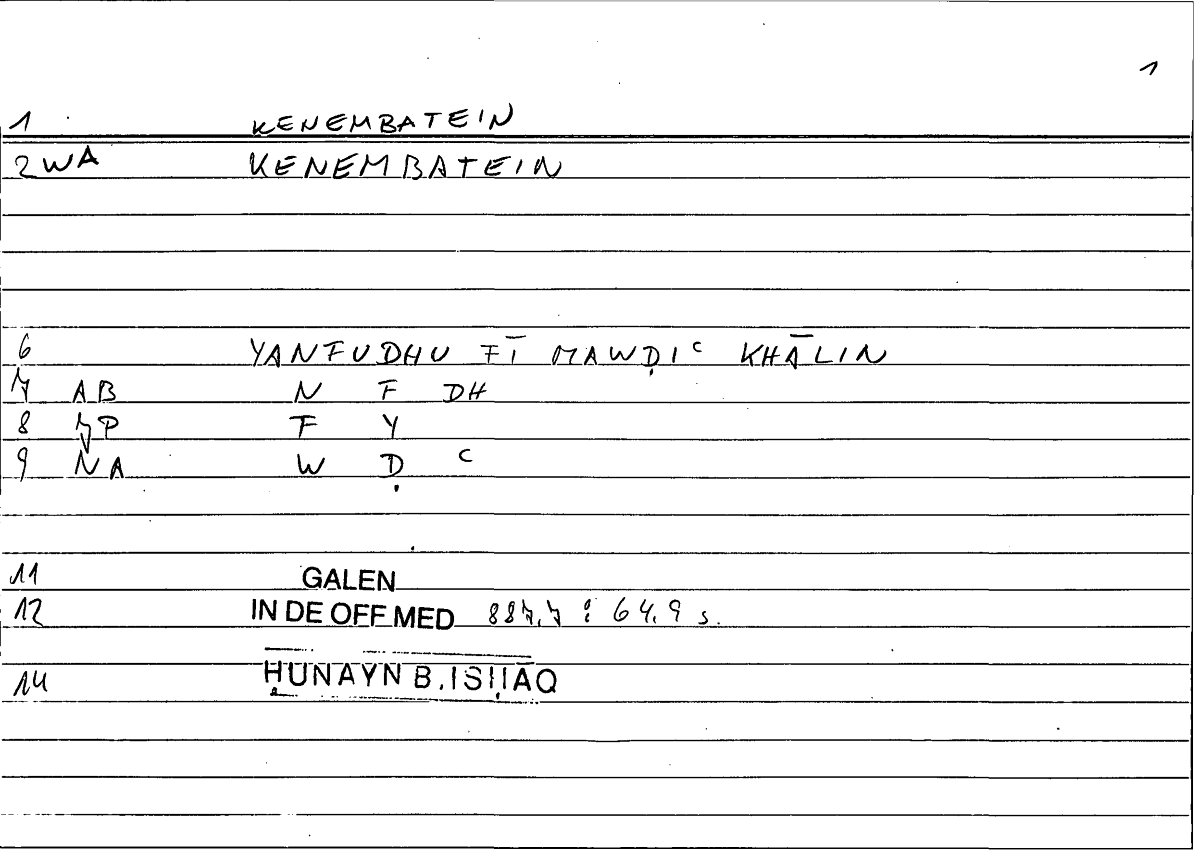 1
1 KENEMBATEIN
2 WA KENEMBATEIN
6 YANFUDHU FĪ MAWḌIʿ KHĀLIN
7 AB N F DH
8 JP F Y
9 NA W Ḍ ʿ
11 GALEN
12 IN DE OFF MED 887,7 : 64,9 s.
14 ḤUNAYN B. ISḤĀQ